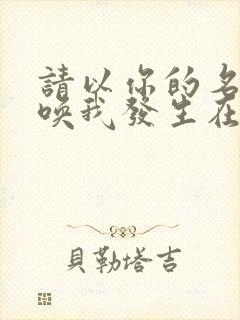 請以你的名
喚我發生在
貝勒塔吉